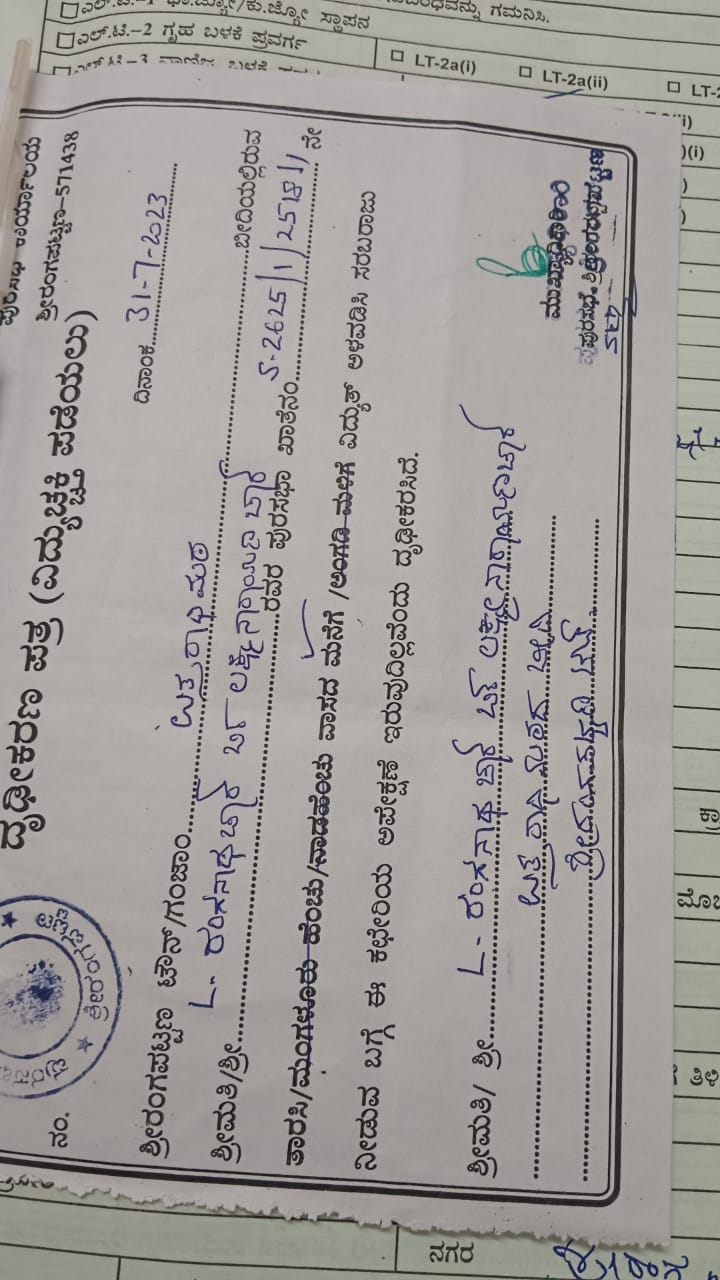 ಎಲ್.ಟಿ.-2 ಗೃಹ ಬಳಕೆ ಪ್ರವರ್ಗ
LT-2a(i)
LT-2a(ii)
ಗಮನಿಸಿ.
ಪುರಸಭೆ ಕಾರ್ಯಾಲಯ
ಶ್ರೀರಂಗಪಟ್ಟಣ-571438
ದೃಢೀಕರಣ ಪತ್ರ (ವಿದ್ಯುಚ್ಛಕ್ತಿ ಪಡೆಯಲು)
ನಂ.
ದಿನಾಂಕ 31-7-2023
ಶ್ರೀರಂಗಪಟ್ಟಣ ಟೌನ್/ಗಂಜಾಂ ಬೀದಿಯಲ್ಲಿರುವ
ಶ್ರೀಮತಿ/ಶ್ರೀ L. ರಂಗನಾಥ ಚಾರ್ ಬಿನ್ ಲಕ್ಷ್ಮೀನಾರಾಯಣ ಚಾರ್ ರವರ ಪುರಸಭಾ ಖಾತೆನಂ. 5-2625/1/2518/1 ನೇ
ತಾರಸಿ/ಮಂಗಳೂರು ಹೆಂಚು/ನಾಡಹೆಂಚು ವಾಸದ ಮನೆಗೆ /ಅಂಗಡಿ ಮಳಿಗೆ ವಿದ್ಯುತ್ ಅಳವಡಿಸಿ ಸರಬರಾಜು
ನೀಡುವ ಬಗ್ಗೆ ಈ ಕಛೇರಿಯ ಅಪೇಕ್ಷಣೆ ಇರುವುದಿಲ್ಲವೆಂದು ದೃಢೀಕರಿಸಿದೆ.
ಶ್ರೀಮತಿ/ ಶ್ರೀ L. ರಂಗನಾಥ ಚಾರ್ ಬಿನ್ ಲಕ್ಷ್ಮೀನಾರಾಯಣಚಾರ್
ಶ್ರೀರಂಗಪಟ್ಟಣ ಟೌನ್
ಮುಖ್ಯಾಧಿಕಾರಿ
ಪುರಸಭೆ, ಶ್ರೀರಂಗಪಟ್ಟಣ
ನಗರ